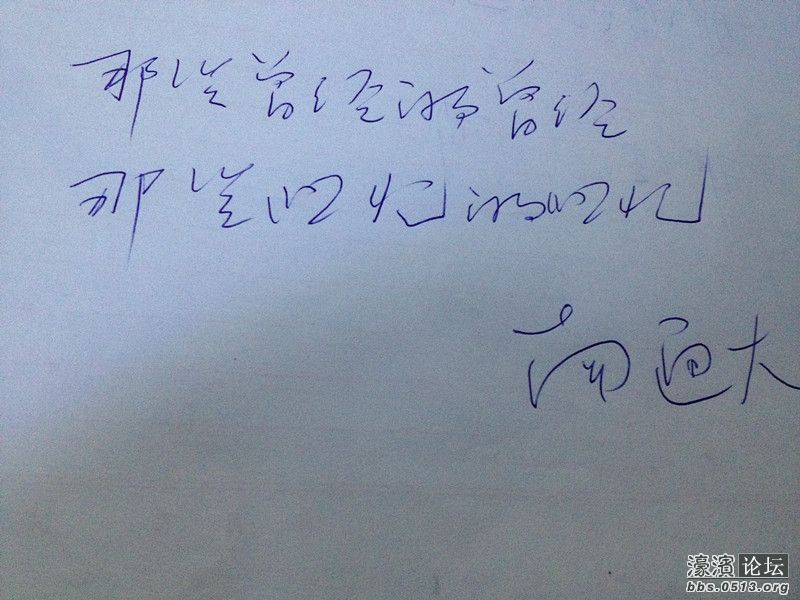 那些曾经的曾经
那些回忆的回忆
南通大
濠滨 论坛
bbs.0513.org